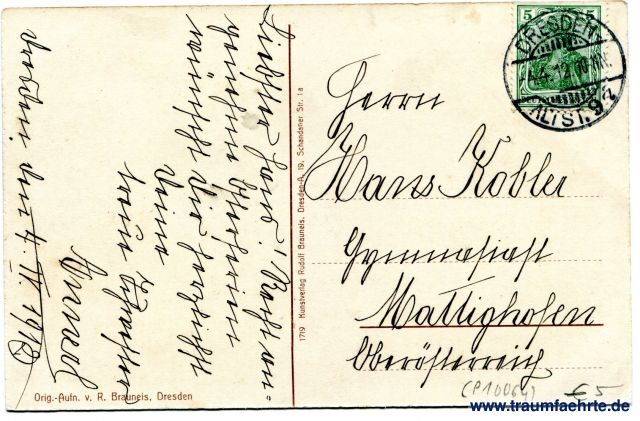 Liebster Hans! Recht an=
genehme Osterferien
wünscht Dir herzlichst
Deine
treue Schwester
Dresden, den 4. IV. 1912
Orig.-Aufn. v. R. Brauneis, Dresden
1719 Kunstverlag Rudolf Brauneis, Dresden-A. 19, Schandauer Str. 1a
5 5
DRESDEN
ALTST. 9z
Herrn
Hans Kobler
Gymnasiast
Mattighofen
Oberösterreich
(P10064)
€ 5
www.traumfaehrte.de